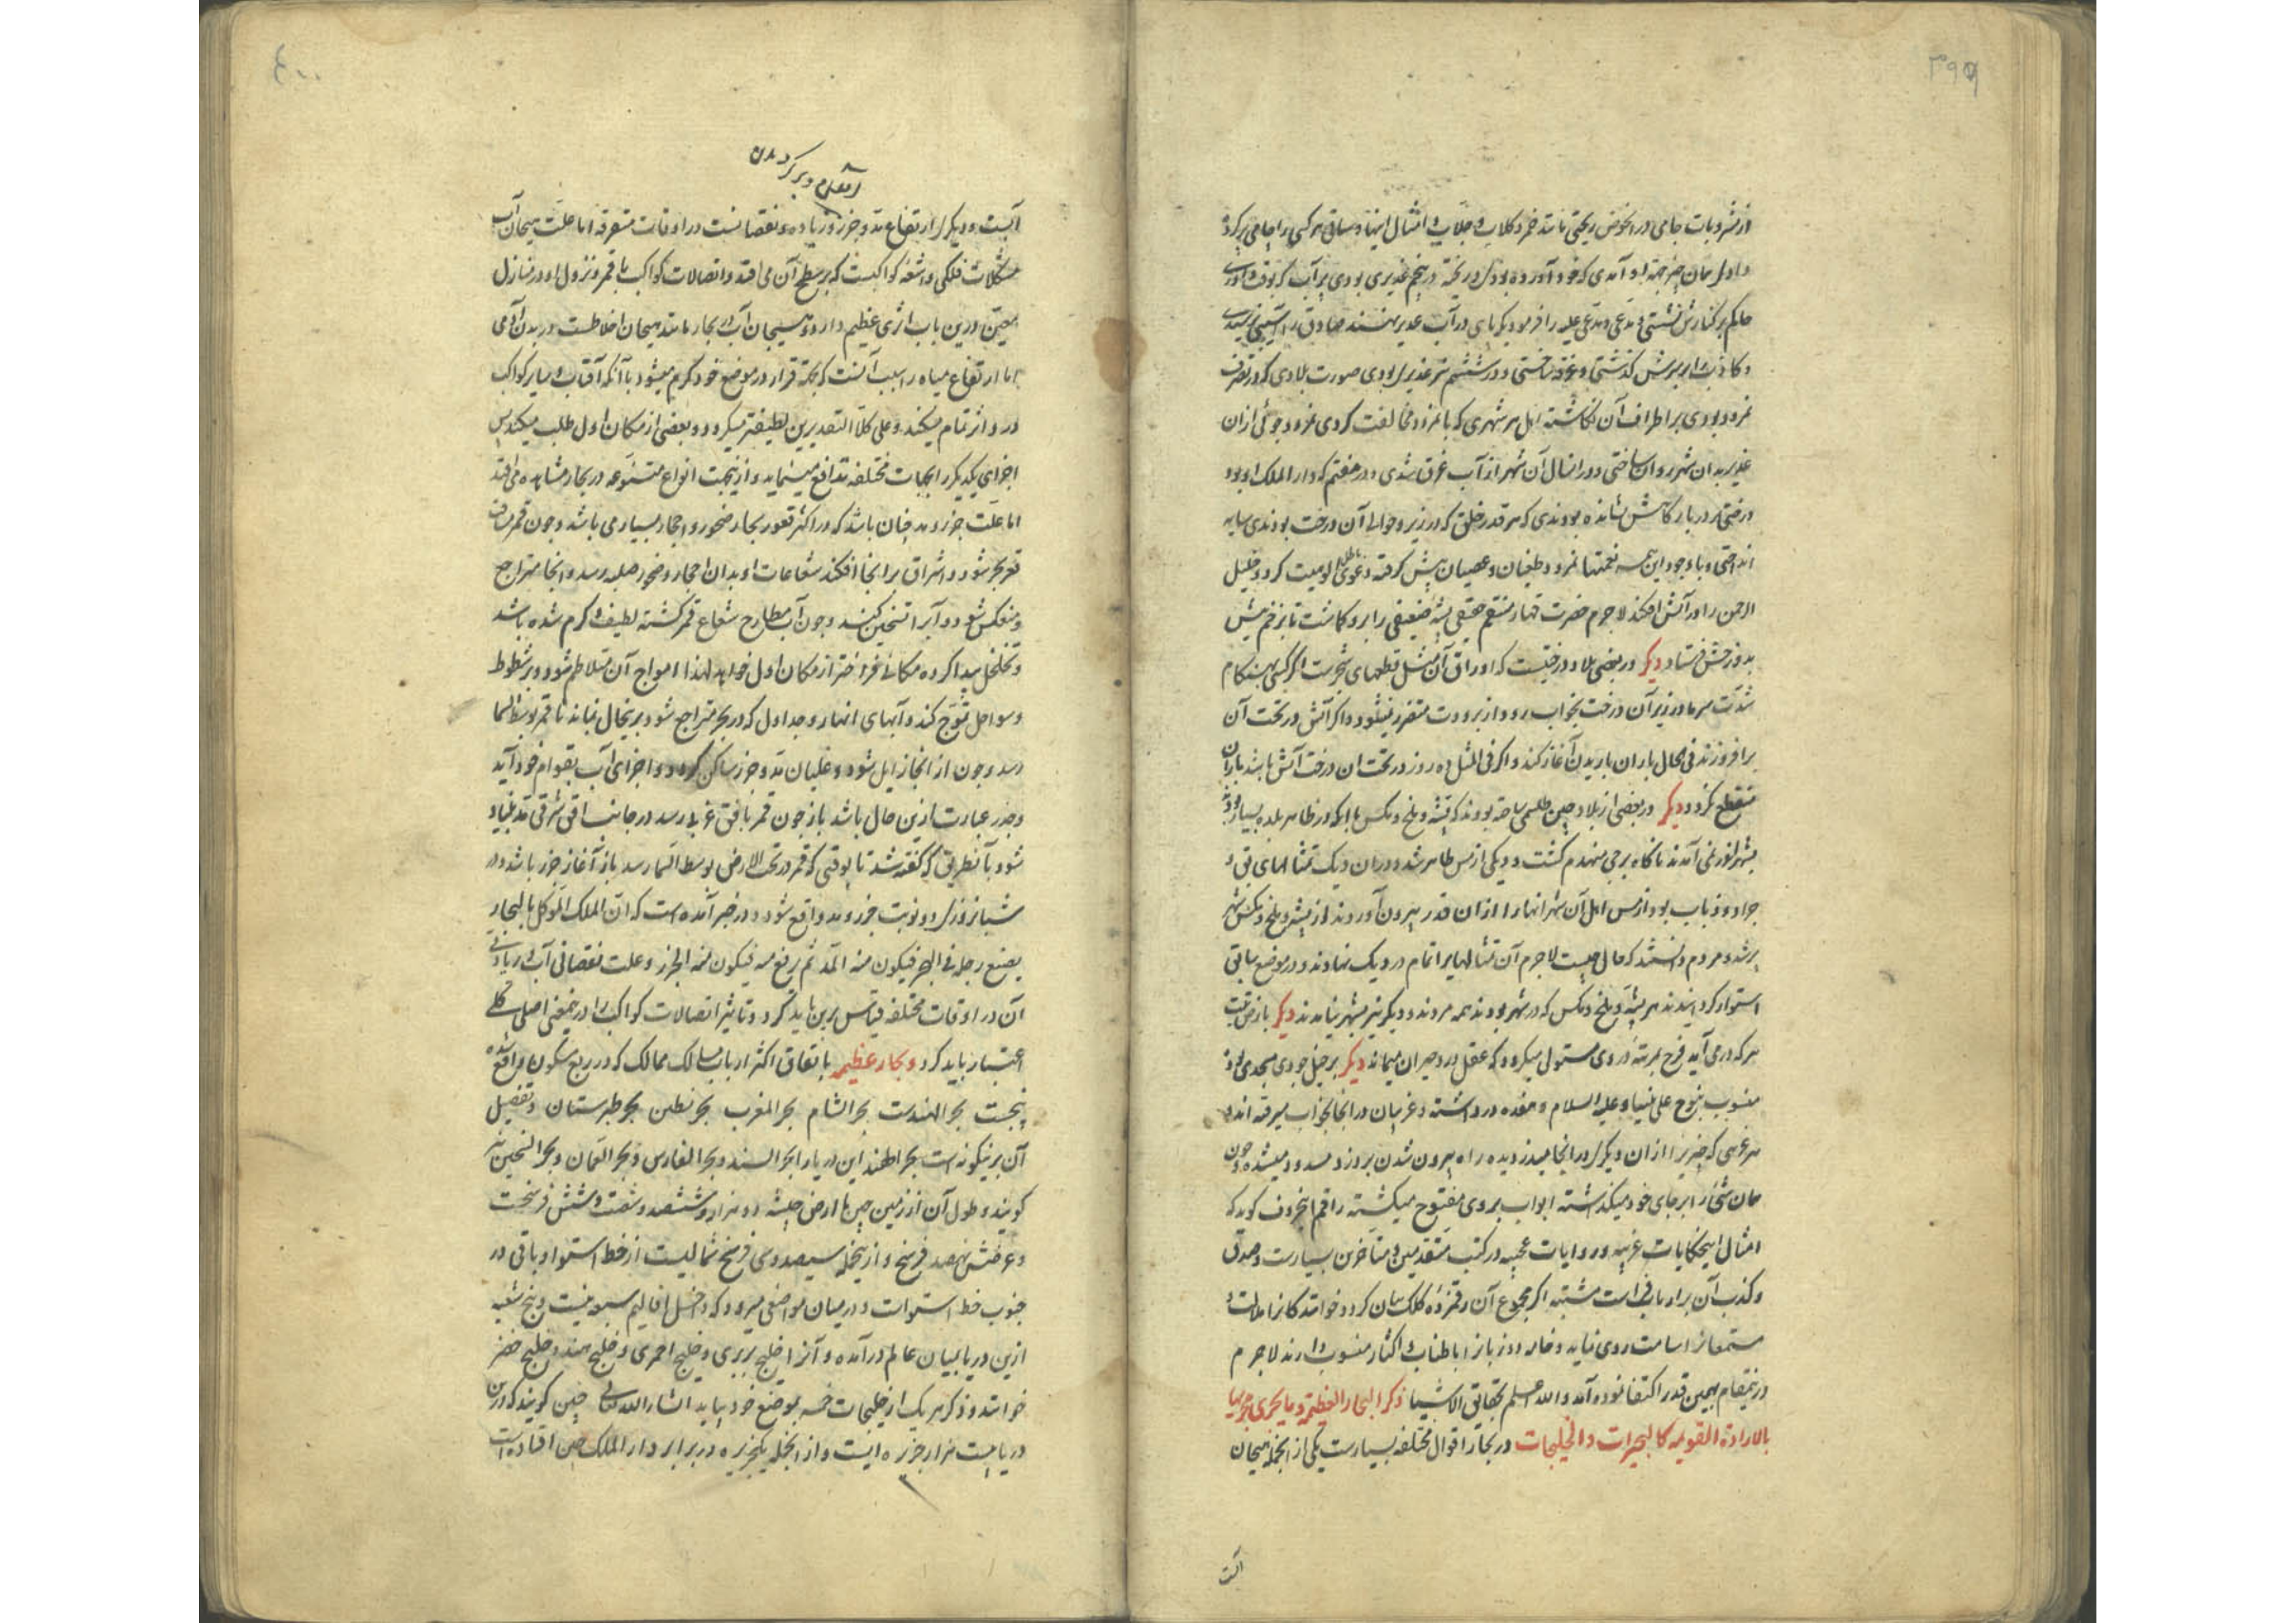 ۳۹۹
از مشروبات جامی در آنحوض ریختی مانند خمر و کلاب و جلاب و امثال اینها و ساقی هر کسی را جامی پر کرد
و اول همان جز بجهة او آمدی که خود آورده بودی و ریخته در پنجم غدیری بودی پر آب که بوقت داوری
حاکم بر کنارش نشستی و مدعی و مدعی علیه را فرمودی که پای در آب غدیر نهند صادق را آسیبی نرسیدی
و کاذب را آب از سرش کذشتی و غرقه ساختی و در ششم نیز غدیری بودی صورت بلادی که در تصرف
نمرود بودی بر اطراف آن نکاشته اهل هر شهری که با نمرود مخالفت کردی نمرود جوئی از ان
غدیر بدان شهر روان ساختی و در انسال آن شهر از آب غرق شدی و در هفتم که دار الملک او بود
درختی بر در بارکاهش نشانده بودندی که هر قدر خلق که در زیر و حوالی آن درخت بودندی سایه
انداختی و با وجود این همه نعمتها نمرود طغیان و عصیان پیش کرفته دعوی باطل الوهیت کرد و خلیل
الرحمن را در آتش افکند لاجرم حضرت قهار منتقم حقیقی پشه ضعیفی را برو کماشت تا بزخم نیش
بدوزخش فرستاد دیکر در بعضی بلاد درختیست که اوراق آن مثل قطعهای شجرست اکر کسی بهنکام
شدت سرما در زیر آن درخت بخواب رود از برودت متضرر نشود و اکر آتش در تحت آن
برافروزند فی الحال باران باریدن آغاز کند و اکر فی المثل ده روز در تحت ان درخت آتش باشد باران
منقطع نکردد دیکر در بعضی از بلاد چین طلسمی ساخته بودند که پشه و ملخ و مکس با آنکه در ظاهر بلده بسیار بودند
بشهر اندر نمی آمدند ناکاه برجی منهدم کشت و دیکی از مس ظاهر شد و در ان دیک تمثالهای بق و
جراد و ذباب بود از مس اهل آن شهر انها را از ان قدر بیرون آوردند از پشه و ملخ و مکس شهر
پر شد و مردم دانستند که حال چیست لاجرم آن تمثالها را تمام در دیک نهادند و در موضع سابق
استوار کردانیدند هر پشه و ملخ و مکس که در شهر بودند همه مردند و دیکر نیز بشهر نیامدند دیکر بارض تبت
هر که در می آید فرح بمرتبه بروی مستولی میکردد که عقل در و حیران میماند دیکر بر جبل جودی مسجدی بود
منسوب بنوح علی نبینا و علیه السلام و هفده در داشته و غریبان در انجا بخواب میرفته اند و
هر غریبی که چیزی را از ان دیکری در انجا میدزدیده راه بیرون شدن بروز و مسدود میشده و چون
همان شئ را بر جای خود میکذاشته ابواب بروی مفتوح میکشته راقم این حروف کوید که
امثال این حکایات غریبه و روایات عجیبه در کتب متقدمین و متاخرین بسیارست و صدق
و کذب آن بر ارباب فراست مشتبه اکر مجموع آن رقمزده کلک بیان کردد خوانندکانرا ملالت و
مستمعانرا سامت روی نماید و خامه دو زبانرا باطناب و اکثار منسوب دارند لاجرم
در ینمقام بهمین قدر اکتفا نموده آمد والله اعلم بحقایق الاشیا ذکر البحار العظیمة و ما یجری مجریها
بالارادة القویمه کالبحیرات و الخلیجات در بحار اقوال مختلفه بسیارست یکی از انجمله هیجان
آبت
۴۰۰
آرام و بر کردیدن
آبست و دیکر ارتفاع مد و جزر و زیاده و نقصانست در اوقات متفرقه اما علت هیجان آب
مشکلات فلکی و اشعه کواکبست که بر سطح آن می افتد و اتصالات کواکب با قمر و نزول او در منازل
معین درین باب اثری عظیم دارد و هیجان آب در بحار مانند هیجان اخلاطست در بدن آدمی
اما ارتفاع میاه را سبب آنست که بجهة قرار در موضع خود کرم میشود یا آنکه آفتاب و سایر کواکب
در و اثر تمام میکند و علی کلا التقدیرین لطیفتر میکردد و بعضی از مکان اول طلب میکند پس
اجزای یکدیکر را بجهات مختلفه تدافع مینماید و از ینجهت انواع متنوعه در بحار مشاهده می افتد
اما علت جزر و مد چنان باشد که در اکثر قعور بحار صخور و احجار بسیار می باشد و چون قمر مسامت
قعر بحر شود و اشراق بر انجا افکند شعاعات او بدان احجار و صخور صلبه رسد و انجا متراجع
و منعکس شود و آبرا تسخین کنند و چون آب مطارح شعاع قمر کشته لطیف و کرم شده باشد
و تخلخل پیدا کرده مکانی فراختر از مکان اول خواهد لهذا امواج آن متلاطم شود و بر شطوط
و سواحل تموج کند و آبهای انهار و جداول که در بحر متراجع شود برینحال بماند تا قمر بوسط السما
رسد و چون از انجا زایل شود غلیان مد و جزر ساکن کردد و اجزای آب بقوام خود آید
و جزر عبارت ازین حال باشد باز چون قمر بافق غربی رسد در جانب افق شرقی مد بنیاد
شود بآنطریق که کفته شد تا بوقتی که قمر در تحت الارض بوسط السما رسد باز آغاز جزر باشد و در
شبانروزی دو نوبت جزر و مد واقع شود و در خبر آمده است که ان الملک الموکل بالبحار
یضع رجله فی البحر فیکون منه المد ثم یرفع منه فیکون منه الجزر و علت نقصان آب و زیادتی
آن در اوقات مختلفه قیاس برین باید کرد و تاثیر اتصالات کواکب را درینمعنی اصلی کلی
اعتبار باید کرد و بحار عظیمه باتفاق اکثر ارباب مسالک ممالک که در ربع مسکون واقع شده
پنجست بحر الهندست بحر الشام بحر المغرب بحر نطس بحر طبرستان و تفصیل
آن برینکونه است بحر الهند این دریا را بحر السند و بحر الفارس و بحر العمان و بحر الصین نیز
کویند و طول آن از زمین چین تا ارض حبشه دو هزار و ششصد و شصت و شش فرسخست
و عرضش نهصد فرسخ و از ینجمله سیصد و سی فرسخ شمالیست از خط استوا و باقی در
جنوب خط استوات و در میان مواضعی میرود که داخل اقالیم سبعه نیست و پنج شعبه
ازین دریا بمیان عالم درآمده و آنرا خلیج بربری و خلیج احمری و خلیج هند و خلیج خضر
خوانند و ذکر هر یک از خلیجات خمسه بموضع خود بیاید انشاء الله تعالی چنین کویند که درین
دریا بیست هزار جزیره ایست و از انجمله یک جزیره در برابر دار الملک چین افتاده است